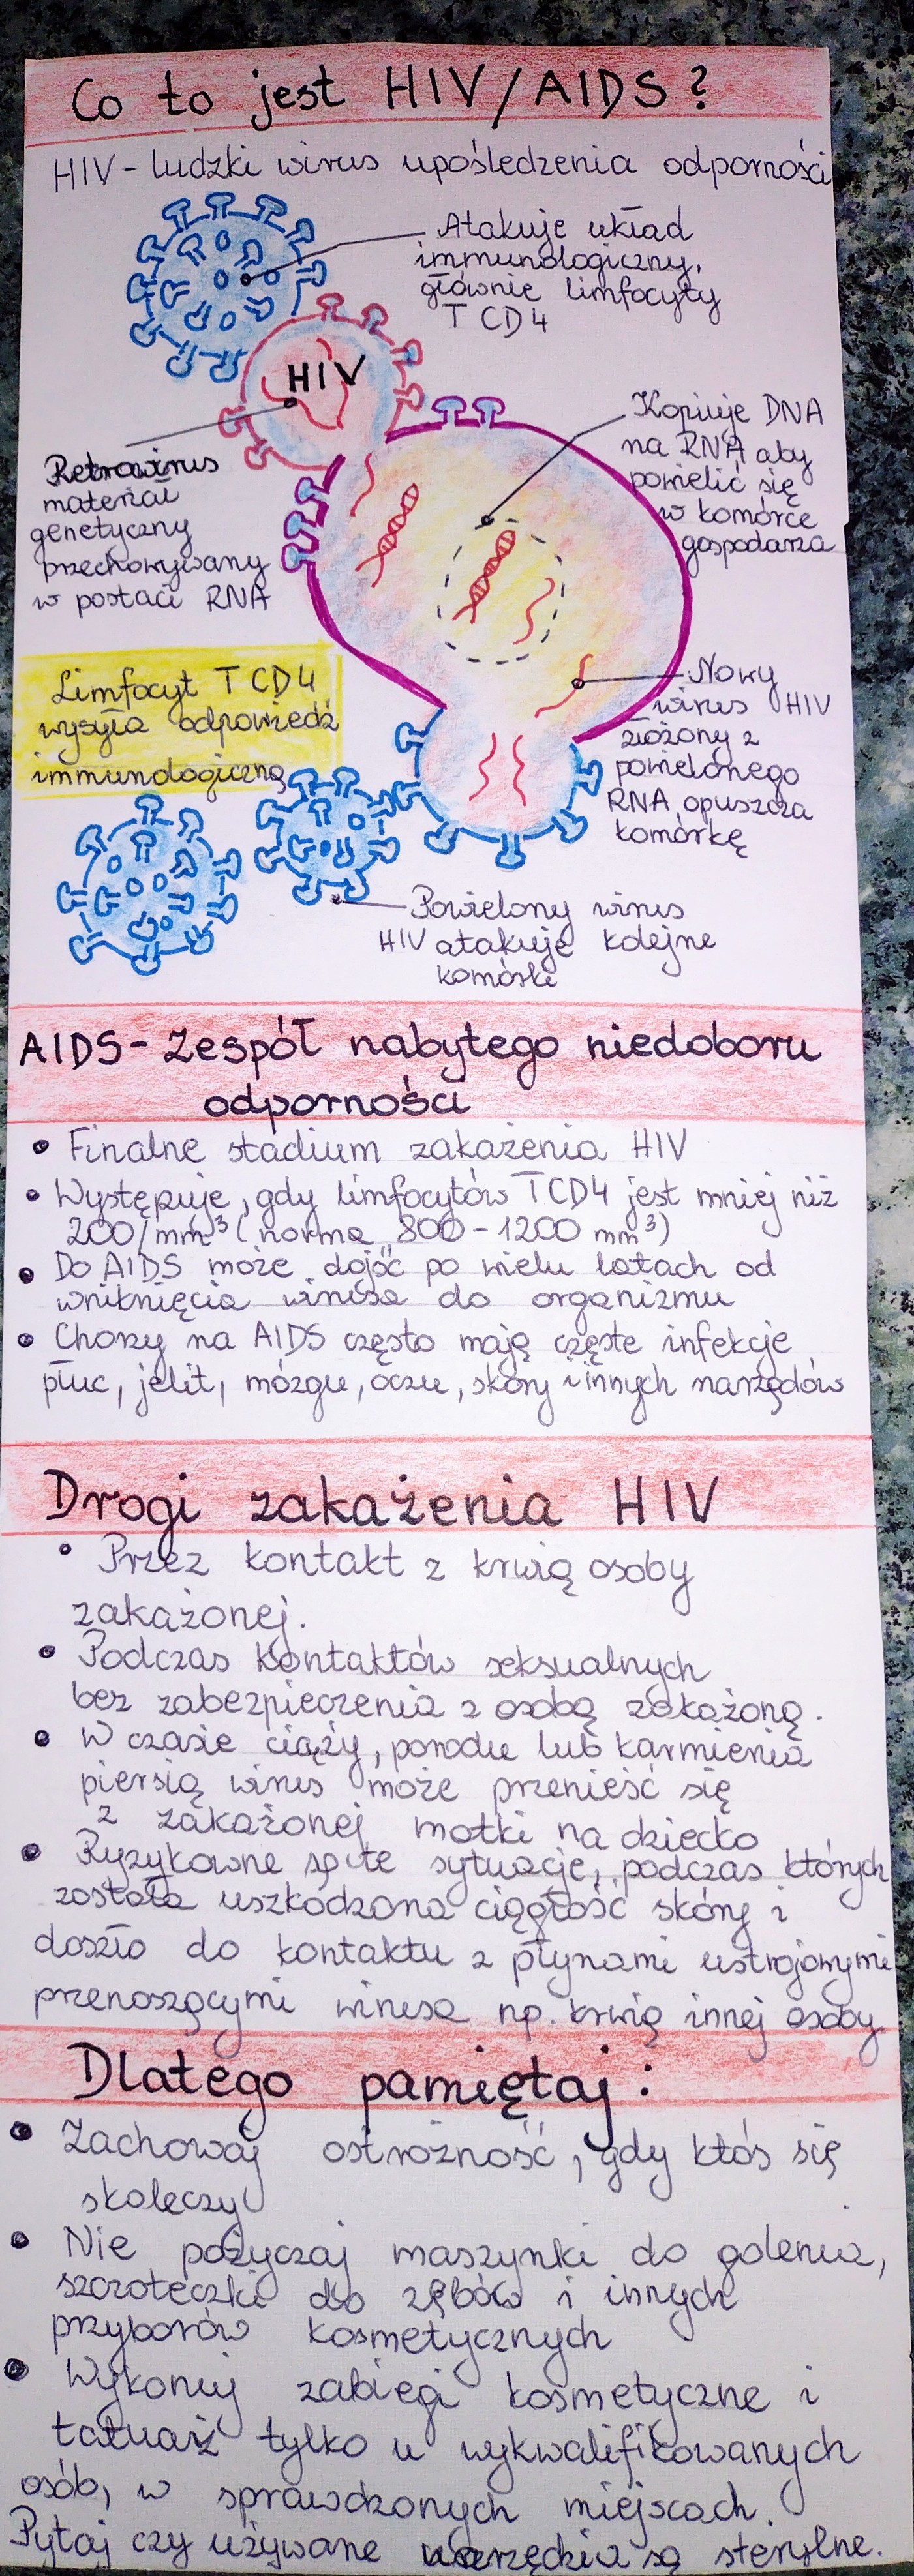 Co to jest HIV/AIDS?
HIV - ludzki wirus upośledzenia odporności
Atakuje układ
immunologiczny,
głównie limfocyty
T CD4
HIV
Retrowirus
materiał
genetyczny
przechowywany
w postaci RNA
Kopiuje DNA
na RNA aby
powielić się
w komórce
gospodarza
Limfocyt T CD4
wysyła odpowiedź
immunologiczną
Nowy
wirus HIV
złożony z
powielonego
RNA opuszcza
komórkę
Powielony wirus
HIV atakuje kolejne
komórki
AIDS - Zespół nabytego niedoboru
odporności
• Finalne stadium zakażenia HIV
• Występuje, gdy limfocytów T CD4 jest mniej niż
200/mm³ (norma 800 - 1200 mm³)
• Do AIDS może dojść po wielu latach od
wniknięcia wirusa do organizmu
• Chorzy na AIDS często mają częste infekcje
płuc, jelit, mózgu, oczu, skóry i innych narządów
Drogi zakażenia HIV
• Przez kontakt z krwią osoby
zakażonej.
• Podczas kontaktów seksualnych
bez zabezpieczenia z osobą zakażoną.
• W czasie ciąży, porodu lub karmienia
piersią wirus może przenieść się
z zakażonej matki na dziecko
• Ryzykowne są te sytuacje, podczas których
została uszkodzona ciągłość skóry i
doszło do kontaktu z płynami ustrojowymi
przenoszącymi wirusa np. krwią innej osoby.
Dlatego pamiętaj:
• Zachowaj ostrożność, gdy ktoś się
skaleczy
• Nie pożyczaj maszynki do golenia,
szczoteczki do zębów i innych
przyborów kosmetycznych
• Wykonuj zabiegi kosmetyczne i
tatuaż tylko u wykwalifikowanych
osób, w sprawdzonych miejscach.
Pytaj czy używane narzędzia są sterylne.